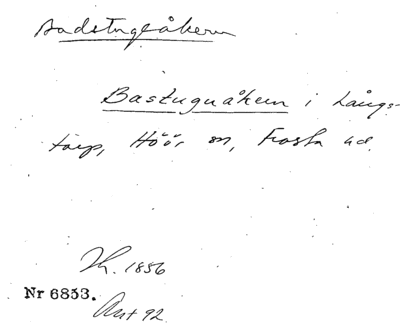 Badstugeåkern
Bastugnåkern i Långs-
torp, Höör sn, Frosta hd.
Th. 1856
Nr 6853.
Ant 92